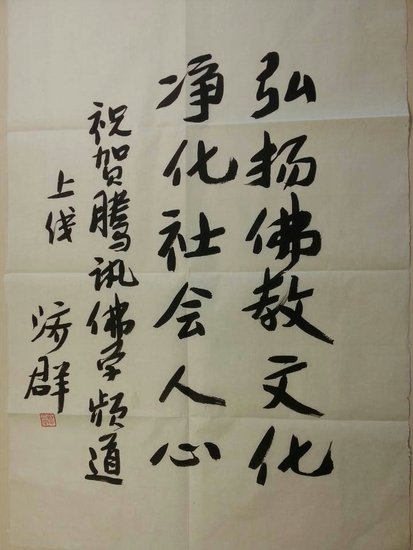 弘扬佛教文化
净化社会人心
祝贺腾讯佛学频道
上线
济群